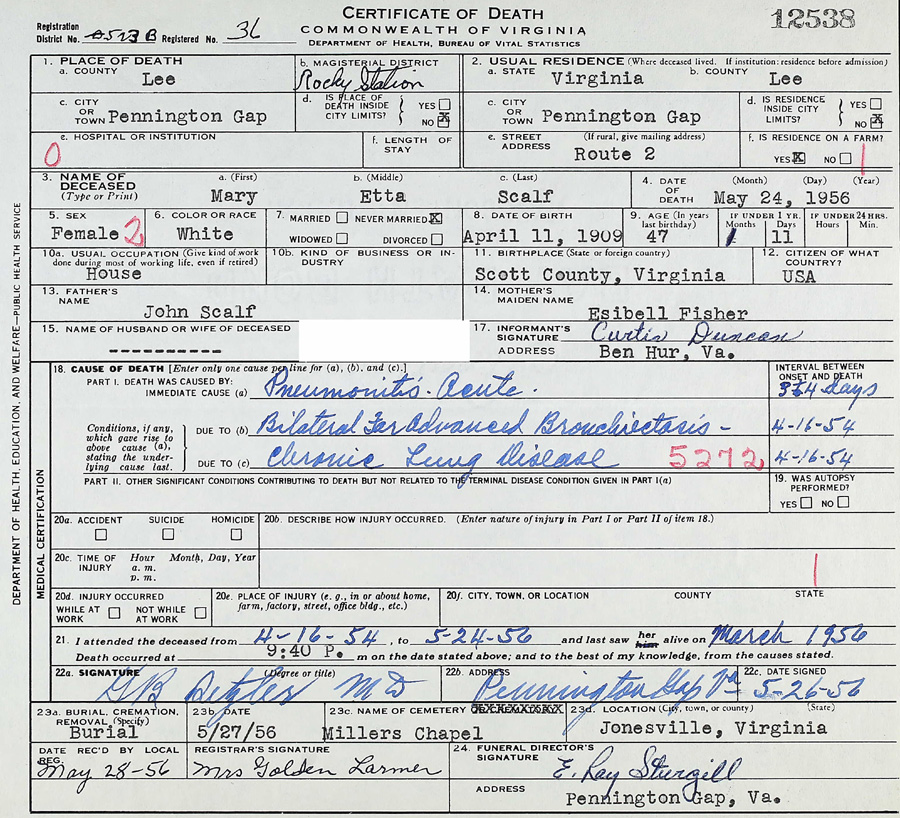 CERTIFICATE OF DEATH
COMMONWEALTH OF VIRGINIA
DEPARTMENT OF HEALTH, BUREAU OF VITAL STATISTICS
12538
Registration
District No. Registered No. 36
1. PLACE OF DEATH
a. COUNTY
Lee
b. MAGISTERIAL DISTRICT
Rocky Station
2. USUAL RESIDENCE (Where deceased lived. If institution: residence before admission)
a. STATE Virginia b. COUNTY Lee
c. CITY OR TOWN Pennington Gap
d. IS PLACE OF DEATH INSIDE CITY LIMITS? YES NO X
c. CITY OR TOWN Pennington Gap
d. IS RESIDENCE INSIDE CITY LIMITS? YES NO X
e. HOSPITAL OR INSTITUTION
0
f. LENGTH OF STAY
e. STREET ADDRESS (If rural, give mailing address)
Route 2
f. IS RESIDENCE ON A FARM?
YES X NO 1
3. NAME OF DECEASED (Type or Print)
a. (First) b. (Middle) c. (Last)
Mary Etta Scalf
4. DATE OF DEATH (Month) (Day) (Year)
May 24, 1956
5. SEX
Female 2
6. COLOR OR RACE
White
7. MARRIED NEVER MARRIED X
WIDOWED DIVORCED
8. DATE OF BIRTH
April 11, 1909
9. AGE (In years last birthday)
47
IF UNDER 1 YR.
Months Days
1 11
IF UNDER 24 HRS.
Hours Min.
10a. USUAL OCCUPATION (Give kind of work done during most of working life, even if retired)
House
10b. KIND OF BUSINESS OR INDUSTRY
11. BIRTHPLACE (State or foreign country)
Scott County, Virginia
12. CITIZEN OF WHAT COUNTRY?
USA
13. FATHER'S NAME
John Scalf
14. MOTHER'S MAIDEN NAME
Esibell Fisher
15. NAME OF HUSBAND OR WIFE OF DECEASED
----------
17. INFORMANT'S SIGNATURE Curtis Duncan
ADDRESS Ben Hur, Va.
18. CAUSE OF DEATH [Enter only one cause per line for (a), (b), and (c).]
INTERVAL BETWEEN ONSET AND DEATH
PART I. DEATH WAS CAUSED BY:
IMMEDIATE CAUSE (a) Pneumonitis - Acute. days
Conditions, if any, which gave rise to above cause (a), stating the underlying cause last.
DUE TO (b) Bilateral Far Advanced Bronchiectasis - 4-16-54
DUE TO (c) Chronic Lung Disease 5272 4-16-54
PART II. OTHER SIGNIFICANT CONDITIONS CONTRIBUTING TO DEATH BUT NOT RELATED TO THE TERMINAL DISEASE CONDITION GIVEN IN PART I(a)
19. WAS AUTOPSY PERFORMED?
YES NO
20a. ACCIDENT SUICIDE HOMICIDE
20b. DESCRIBE HOW INJURY OCCURRED. (Enter nature of injury in Part I or Part II of item 18.)
20c. TIME OF INJURY Hour Month, Day, Year
a. m.
p. m.
1
20d. INJURY OCCURRED
WHILE AT WORK NOT WHILE AT WORK
20e. PLACE OF INJURY (e. g., in or about home, farm, factory, street, office bldg., etc.)
20f. CITY, TOWN, OR LOCATION COUNTY STATE
21. I attended the deceased from 4-16-54, to 5-24-56 and last saw her him alive on March 1956
Death occurred at 9:40 P. m on the date stated above; and to the best of my knowledge, from the causes stated.
22a. SIGNATURE (Degree or title)
GB Detzler MD
22b. ADDRESS
Pennington Gap Va
22c. DATE SIGNED
5-26-56
23a. BURIAL, CREMATION, REMOVAL (Specify)
Burial
23b. DATE
5/27/56
23c. NAME OF CEMETERY OR CREMATORY
Millers Chapel
23d. LOCATION (City, town, or county) (State)
Jonesville, Virginia
DATE REC'D BY LOCAL REG.
May 28-56
REGISTRAR'S SIGNATURE
Mrs Golden Larmer
24. FUNERAL DIRECTOR'S SIGNATURE
E. Ray Sturgill
ADDRESS
Pennington Gap, Va.
DEPARTMENT OF HEALTH, EDUCATION, AND WELFARE—PUBLIC HEALTH SERVICE
MEDICAL CERTIFICATION